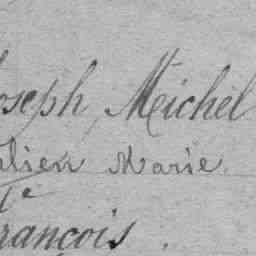 Joseph, Meichel
Julien Marie.
Te
François.